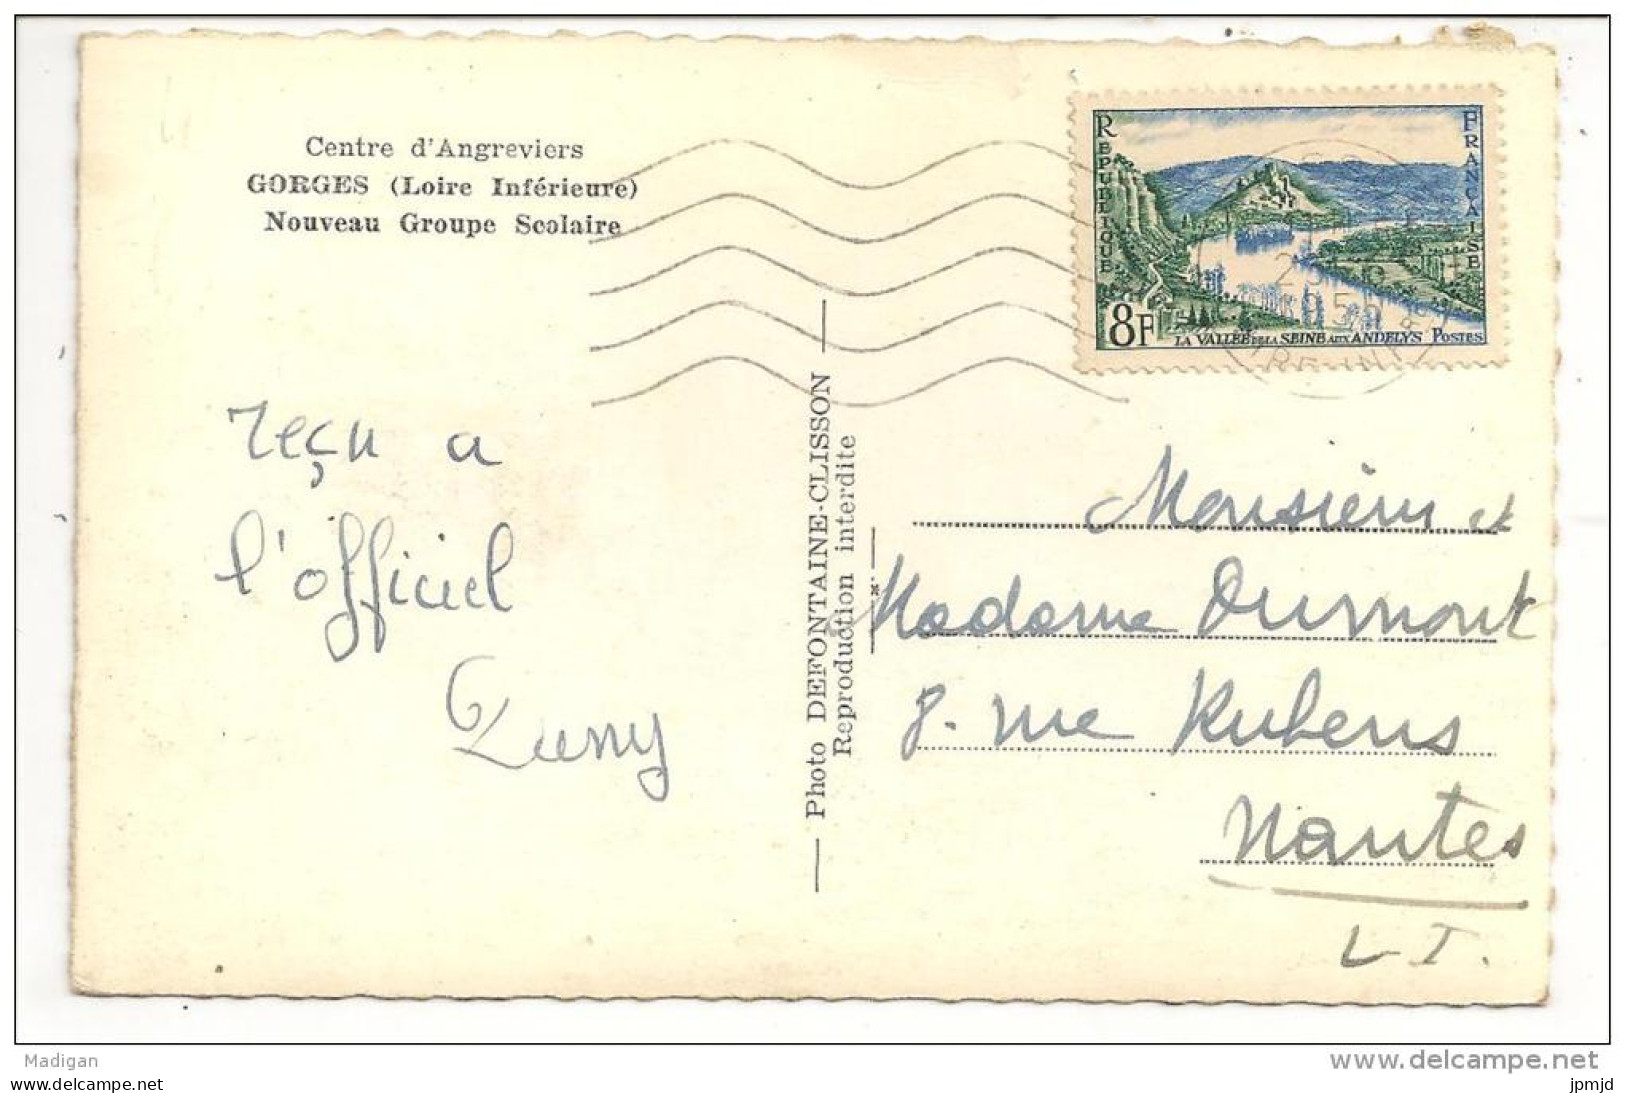 Centre d'Angreviers
GORGES (Loire Inférieure)
Nouveau Groupe Scolaire
REPUBLIQUE
FRANCAISE
8F
LA VALLEE DE LA SEINE AUX ANDELYS POSTES
reçu a
l'officiel
Photo DEFONTAINE-CLISSON
Reproduction interdite
Monsieur et
Madame Dumont
8. rue Rubens
Nantes
L I.
Madigan
www.delcampe.net
jpmjd